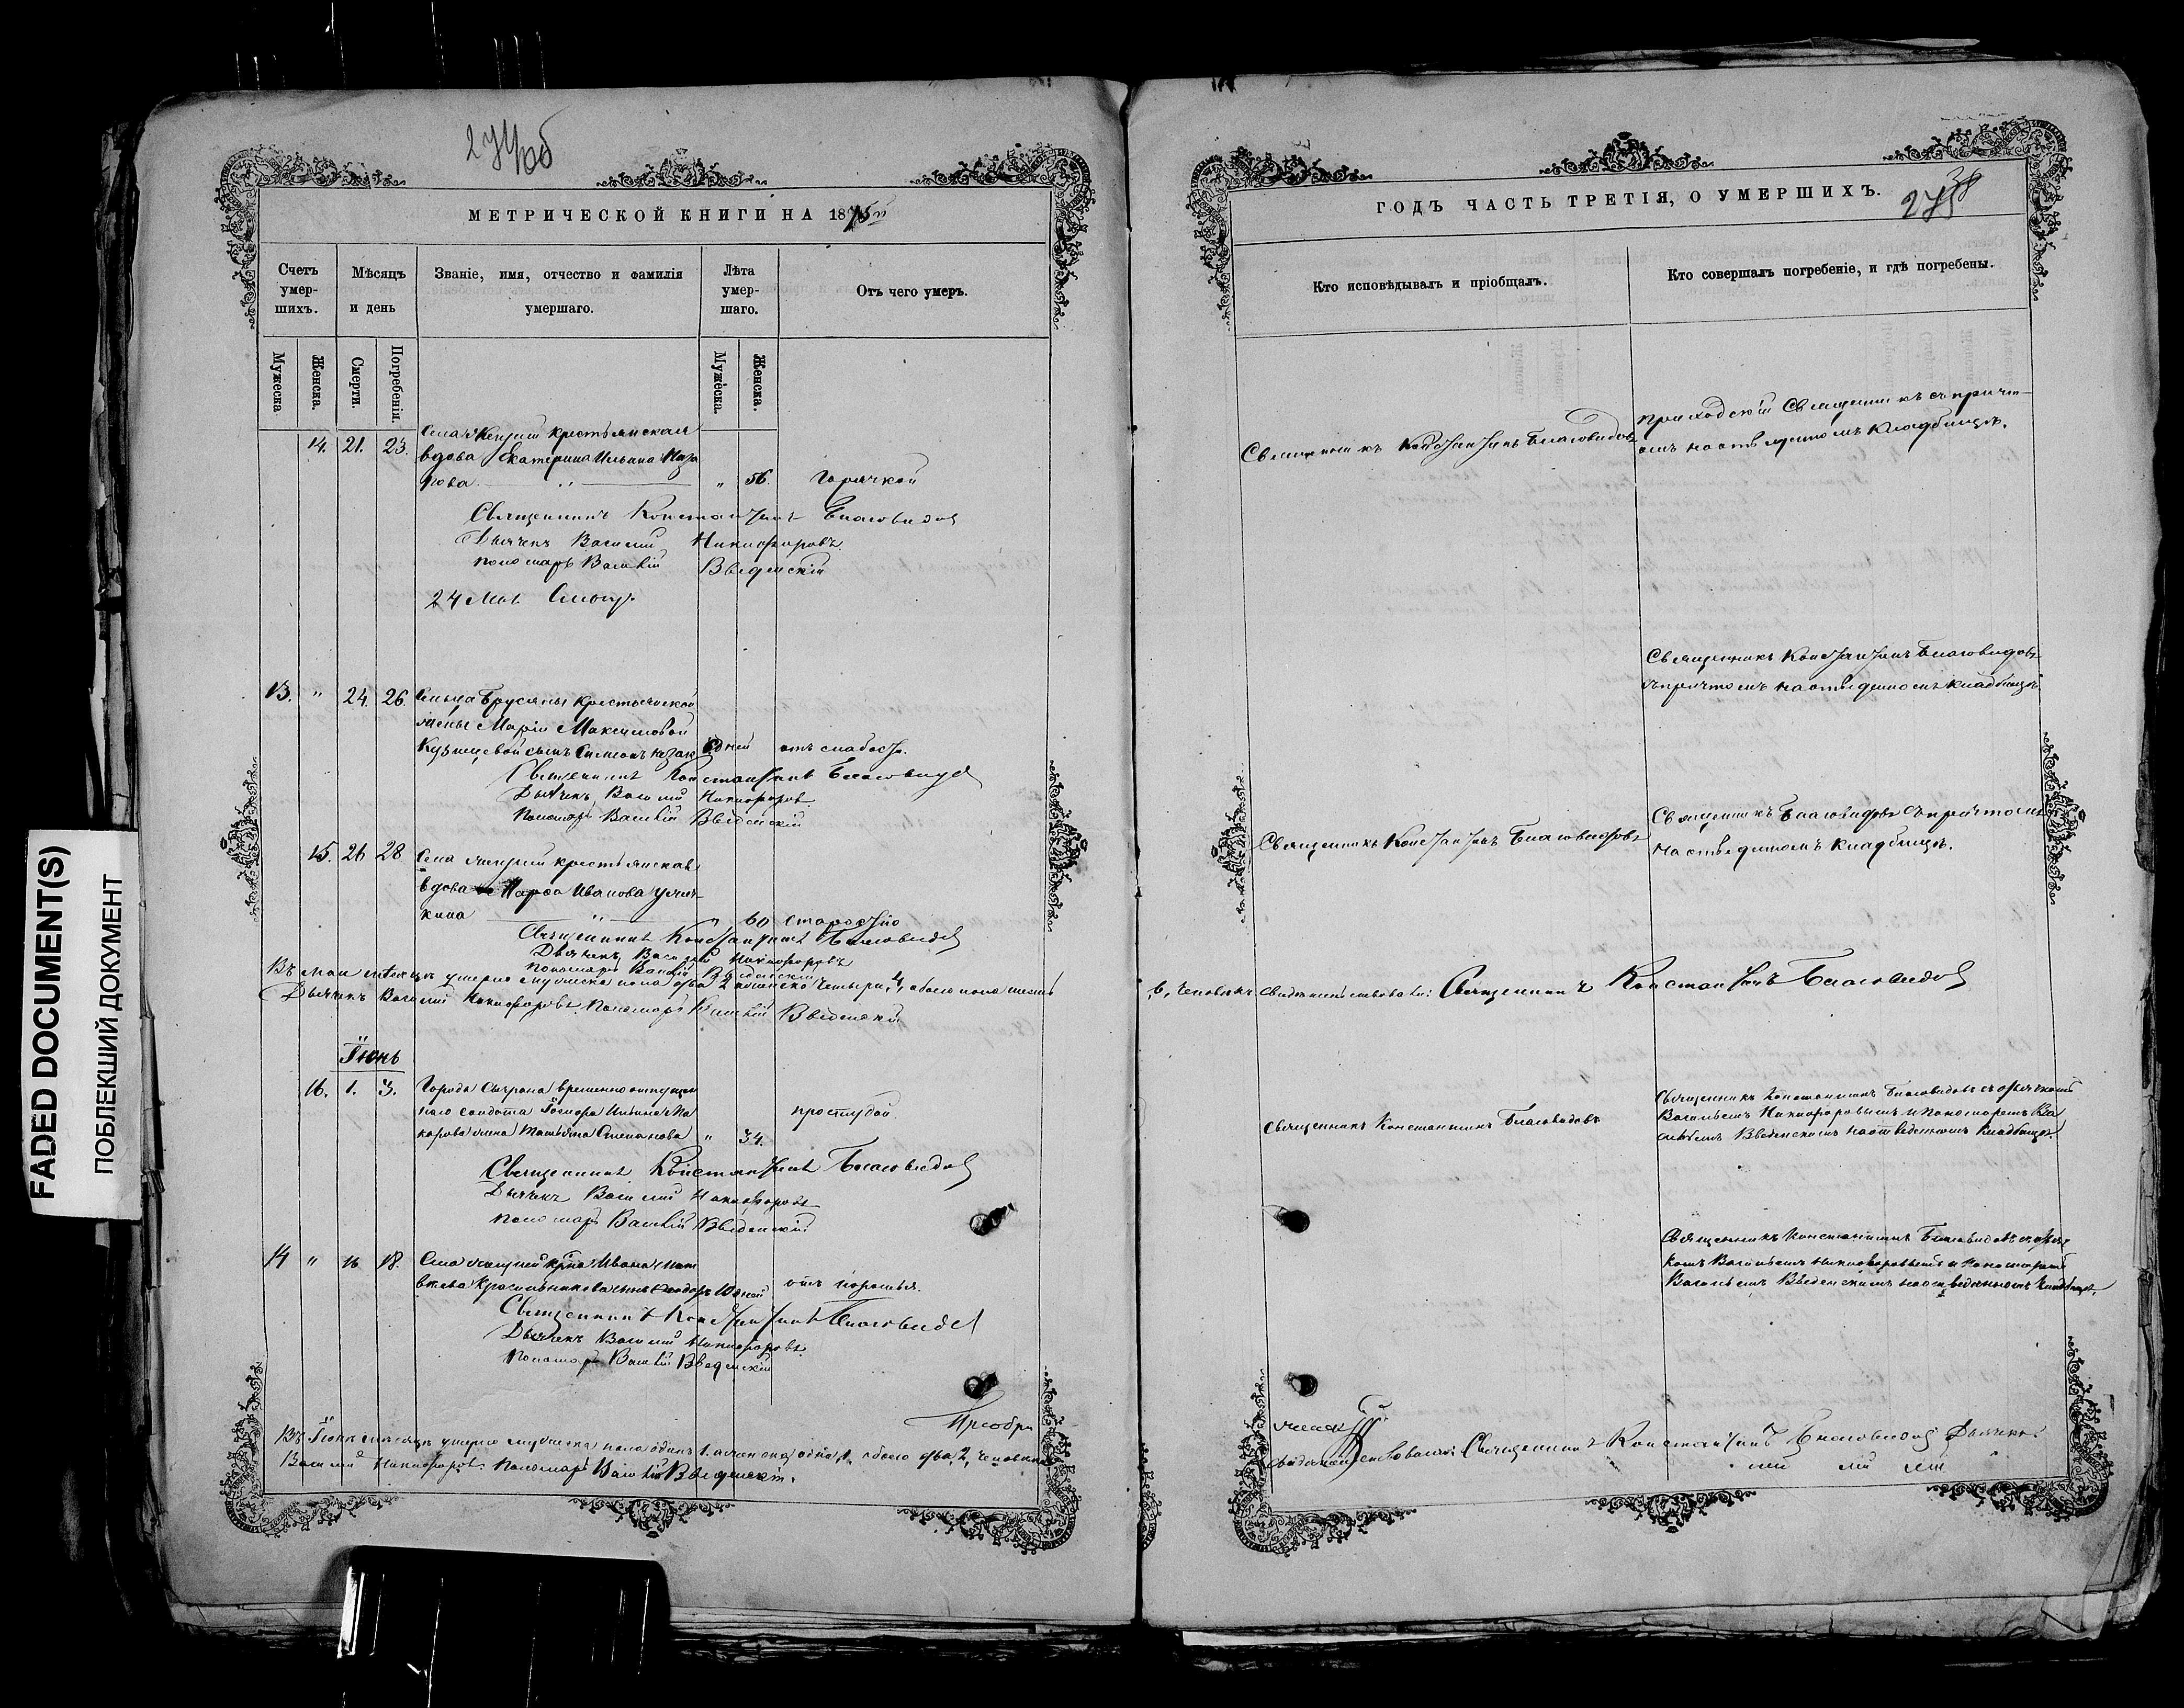 274об
МЕТРИЧЕСКОЙ КНИГИ НА 1875й
Счетъ умер-шихъ.
Мѣсяцъ и день
Званіе, имя, отчество и фамилія умершаго.
Лѣта умер-шаго.
Отъ чего умеръ.
Мужеска
Женска.
Смерти.
Погребенія.
Мужеска.
Женска.
14. 21. 23.
крестьянская
вдова Екатерина Ильина Наза
рова " 56. Горячкой
Священникъ Константинъ Благовидов
Дьячекъ Василій Никифоровъ
Пономарь Василій Введенскій
24
13. " 24. 26. Сельца Брусяны крестьянской
жены Маріи Максимовой
Кузнецовой сынъ 6 дней отъ слабости.
Священникъ Константинъ Благовидов
Дьячекъ Василій Никифоровъ
Пономарь Василій Введенскій
15. 26 28 Села крестьянская
вдова Марѳа Иванова
кина " " 60 старостію
Священникъ Константинъ Благовидов
Дьячекъ Василій Никифоровъ
Пономарь Василій Введенскій
Въ маѣ мѣсяцѣ умерло мужеска пола два 2 женска четыре, 4, обоего пола шесть
Дьячекъ Василій Никифоровъ. Пономарь Василій Введенскій
Іюнь
16. 1. 3. Города Сызрана временно отпущен
наго солдата Ѳедора Ильина Ма
карова жена Татьяна Степанова " 34. простудой
Священникъ Константинъ Благовидов
Дьячекъ Василій Никифоровъ
Пономарь Василій Введенскій
14 " 16 18. Села кр-на Ивана Мат
вѣева Красильникова сынъ Ѳеодоръ 10 дней отъ
Священникъ Константинъ Благовидов
Дьячекъ Василій Никифоровъ
Пономарь Василій Введенскій
Въ Іюнѣ мѣсяцѣ умерло мужеска пола одинъ 1. женска одна, 1, обоего два 2, человека
Василій Никифоровъ. Пономарь Василій Введенскій.
Преобра
ГОДЪ ЧАСТЬ ТРЕТІЯ, О УМЕРШИХЪ.
275
38
Кто исповѣдывалъ и пріобщалъ.
Кто совершалъ погребеніе, и гдѣ погребены.
Священникъ Константинъ Благовидовъ
Приходскій Священникъ съ причт-
омъ на отведенномъ кладбищѣ.
Священникъ Константинъ Благовидовъ
съ причтомъ на отведенномъ кладбищѣ
Священникъ Константинъ Благовидовъ
Священникъ Благовидовъ съ причтомъ
на отведенномъ кладбищѣ.
,6, человѣкъ свидѣтельствовали: Священникъ Константинъ Благовидов
Священникъ Константинъ Благовидовъ
Священникъ Константинъ Благовидовъ съ дьячкомъ
Васильемъ Никифоровымъ и Пономаремъ Ва
сильемъ Введенскимъ на отведенномъ кладбищѣ.
Священникъ Константинъ Благовидовъ съ дьяч
комъ Васильемъ Никифоровымъ и Пономаремъ
Васильемъ Введенскимъ на отведенномъ кладбищѣ.
свидѣтельствовали: Священникъ Константинъ Благовидовъ Дьячекъ
FADED DOCUMENT(S)
ПОБЛЕКШИЙ ДОКУМЕНТ